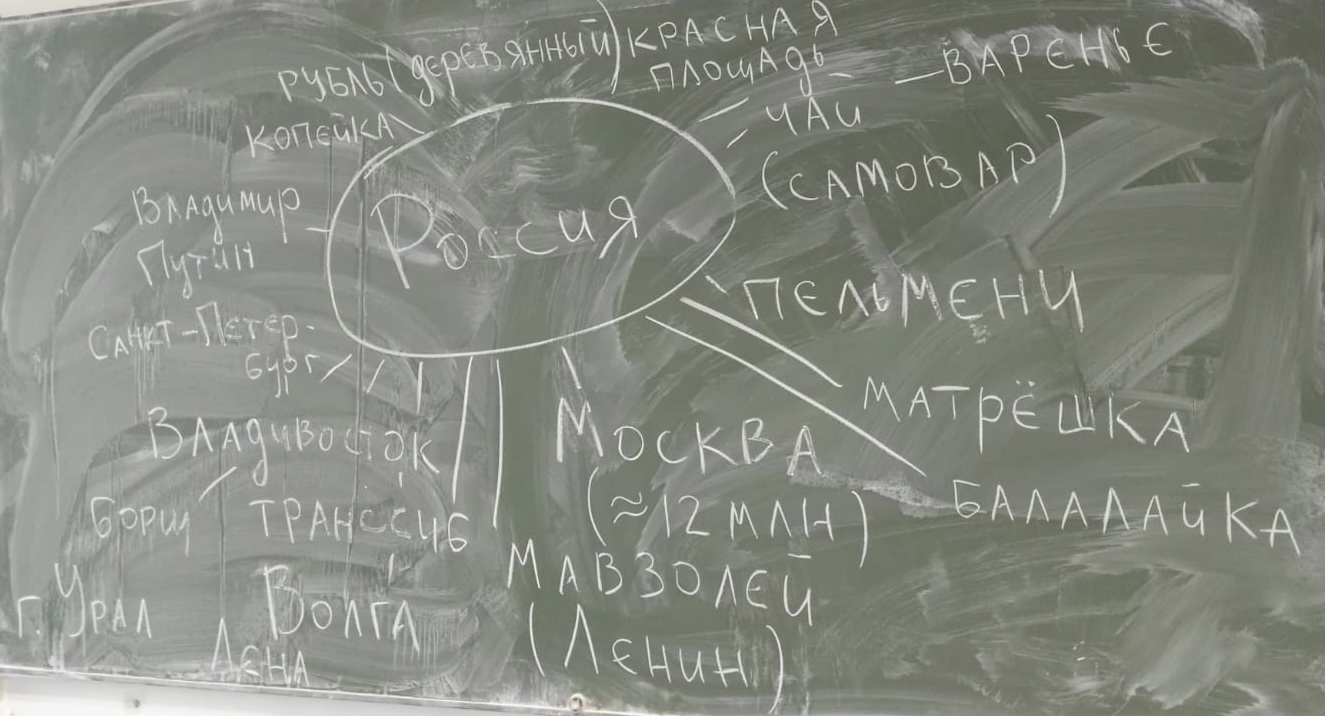 РУБЛЬ (деревянный)
КОПЕЙКА
КРАСНАЯ
ПЛОЩАДЬ
ЧАЙ
— ВАРЕНЬЕ
(САМОВАР)
Владимир
Путин
Россия
ПЕЛЬМЕНИ
Санкт-Петер-
бург
МАТРЁШКА
Владивосток
МОСКВА
(≈12 МЛН)
БАЛАЛАЙКА
борщ
ТРАНССИБ
МАВЗОЛЕЙ
(Ленин)
г. Урал
Волга
Лена